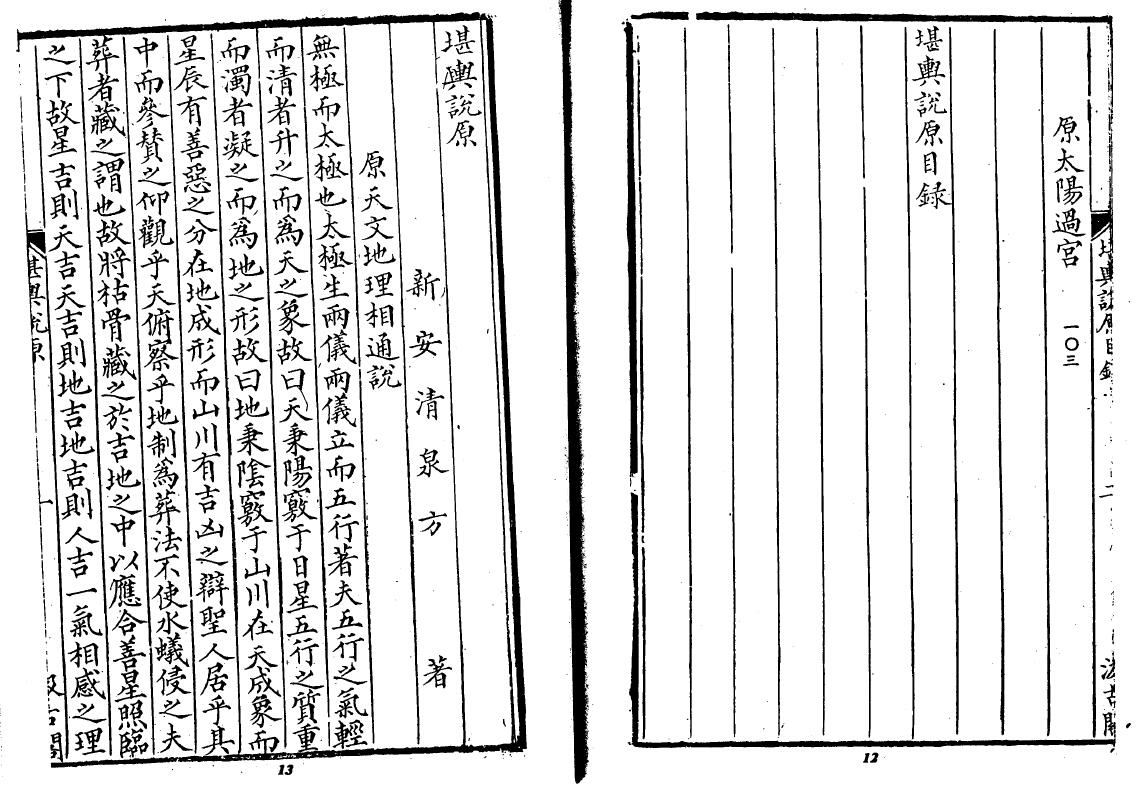 原太陽過宮 一〇三
堪輿說原目録
12
堪輿說原
新安清泉方 著
原天文地理相通說
無極而太極也太極生兩儀兩儀立而五行著夫五行之氣輕
而清者升之而為天之象故曰天秉陽竅于日星五行之質重
而濁者凝之而為地之形故曰地秉陰竅于山川在天成象而
星辰有善惡之分在地成形而山川有吉凶之辯聖人居乎其
中而參賛之仰觀乎天俯察乎地制為葬法不使水蟻侵之夫
葬者藏之謂也故將枯骨藏之於吉地之中以應合善星照臨
之下故星吉則天吉天吉則地吉地吉則人吉一氣相感之理
堪輿說原 一
13